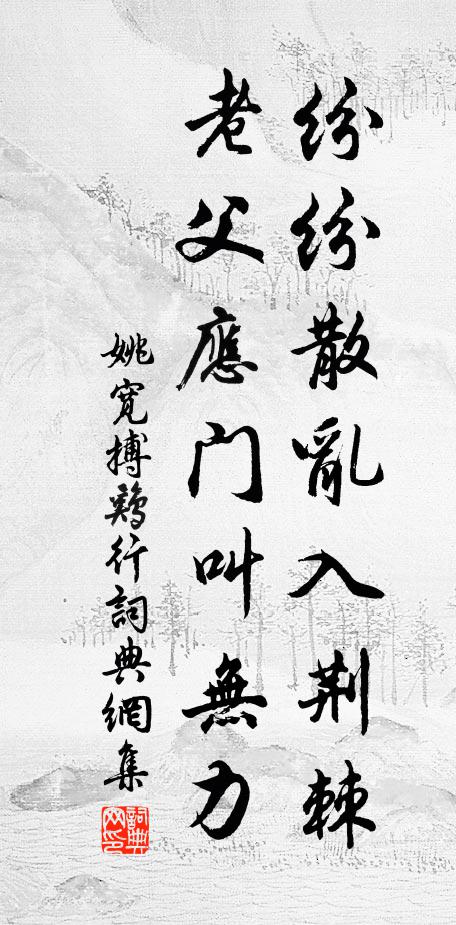 紛紛散亂入荆棘
老父應门叫無力
姚寬搏鷄行詞典網集
詞典网印